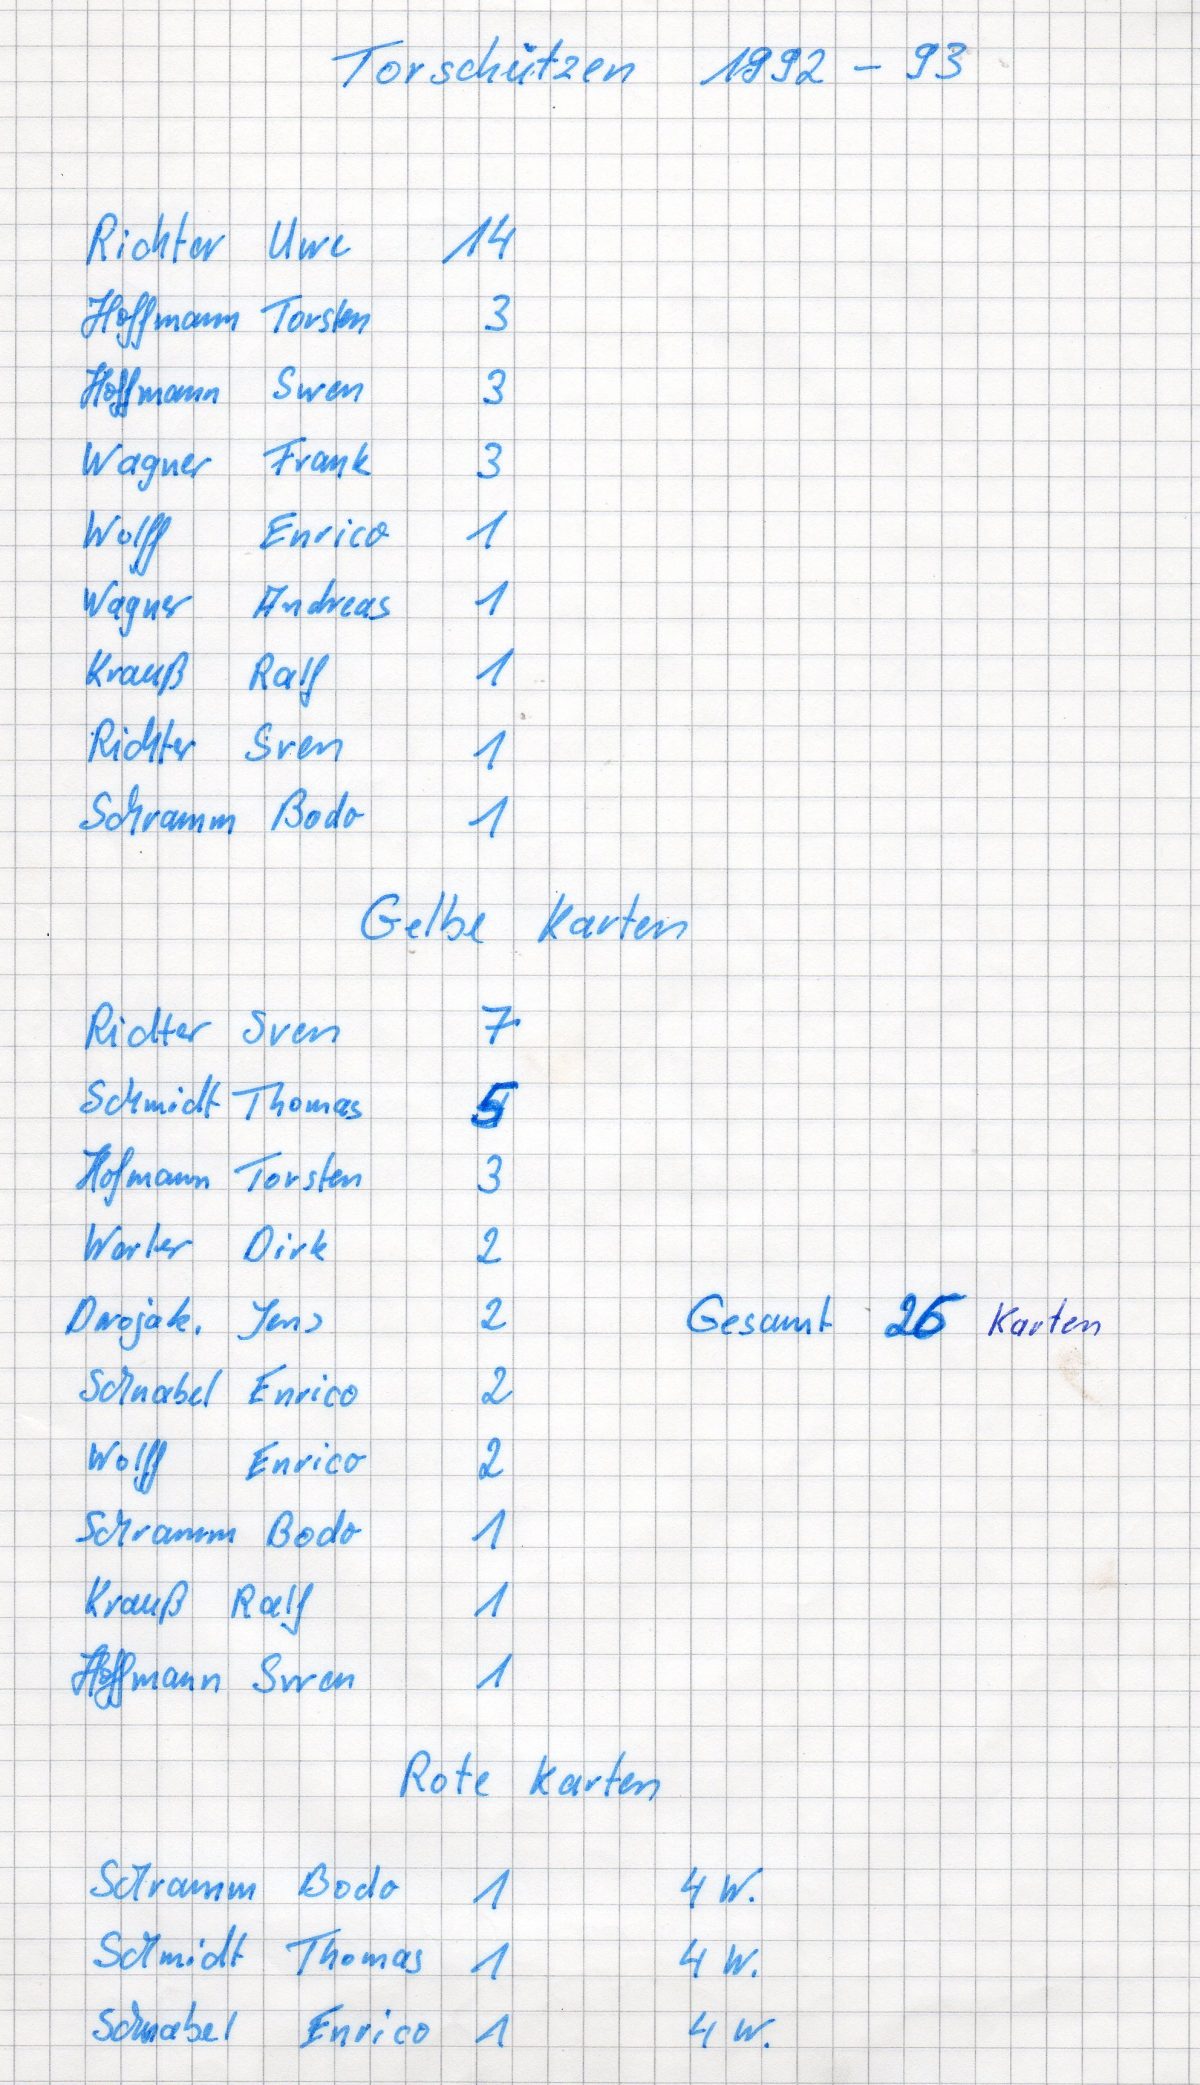 Torschützen 1992 - 93
Richter Uwe 14
Hoffmann Torsten 3
Hoffmann Swen 3
Wagner Frank 3
Wolff Enrico 1
Wagner Andreas 1
Krauß Ralf 1
Richter Sven 1
Schramm Bodo 1
Gelbe Karten
Richter Sven 7
Schmidt Thomas 5
Hofmann Torsten 3
Dirk 2
Jens 2 Gesamt 26 Karten
Schnabel Enrico 2
Wolff Enrico 2
Schramm Bodo 1
Krauß Ralf 1
Hoffmann Swen 1
Rote Karten
Schramm Bodo 1 4 W.
Schmidt Thomas 1 4 W.
Schnabel Enrico 1 4 W.